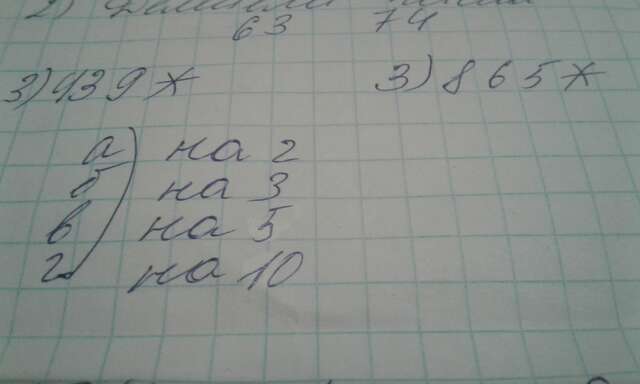 2) Делители
63 74
3) 439* 3) 865*
а) на 2
б) на 3
в) на 5
г) на 10